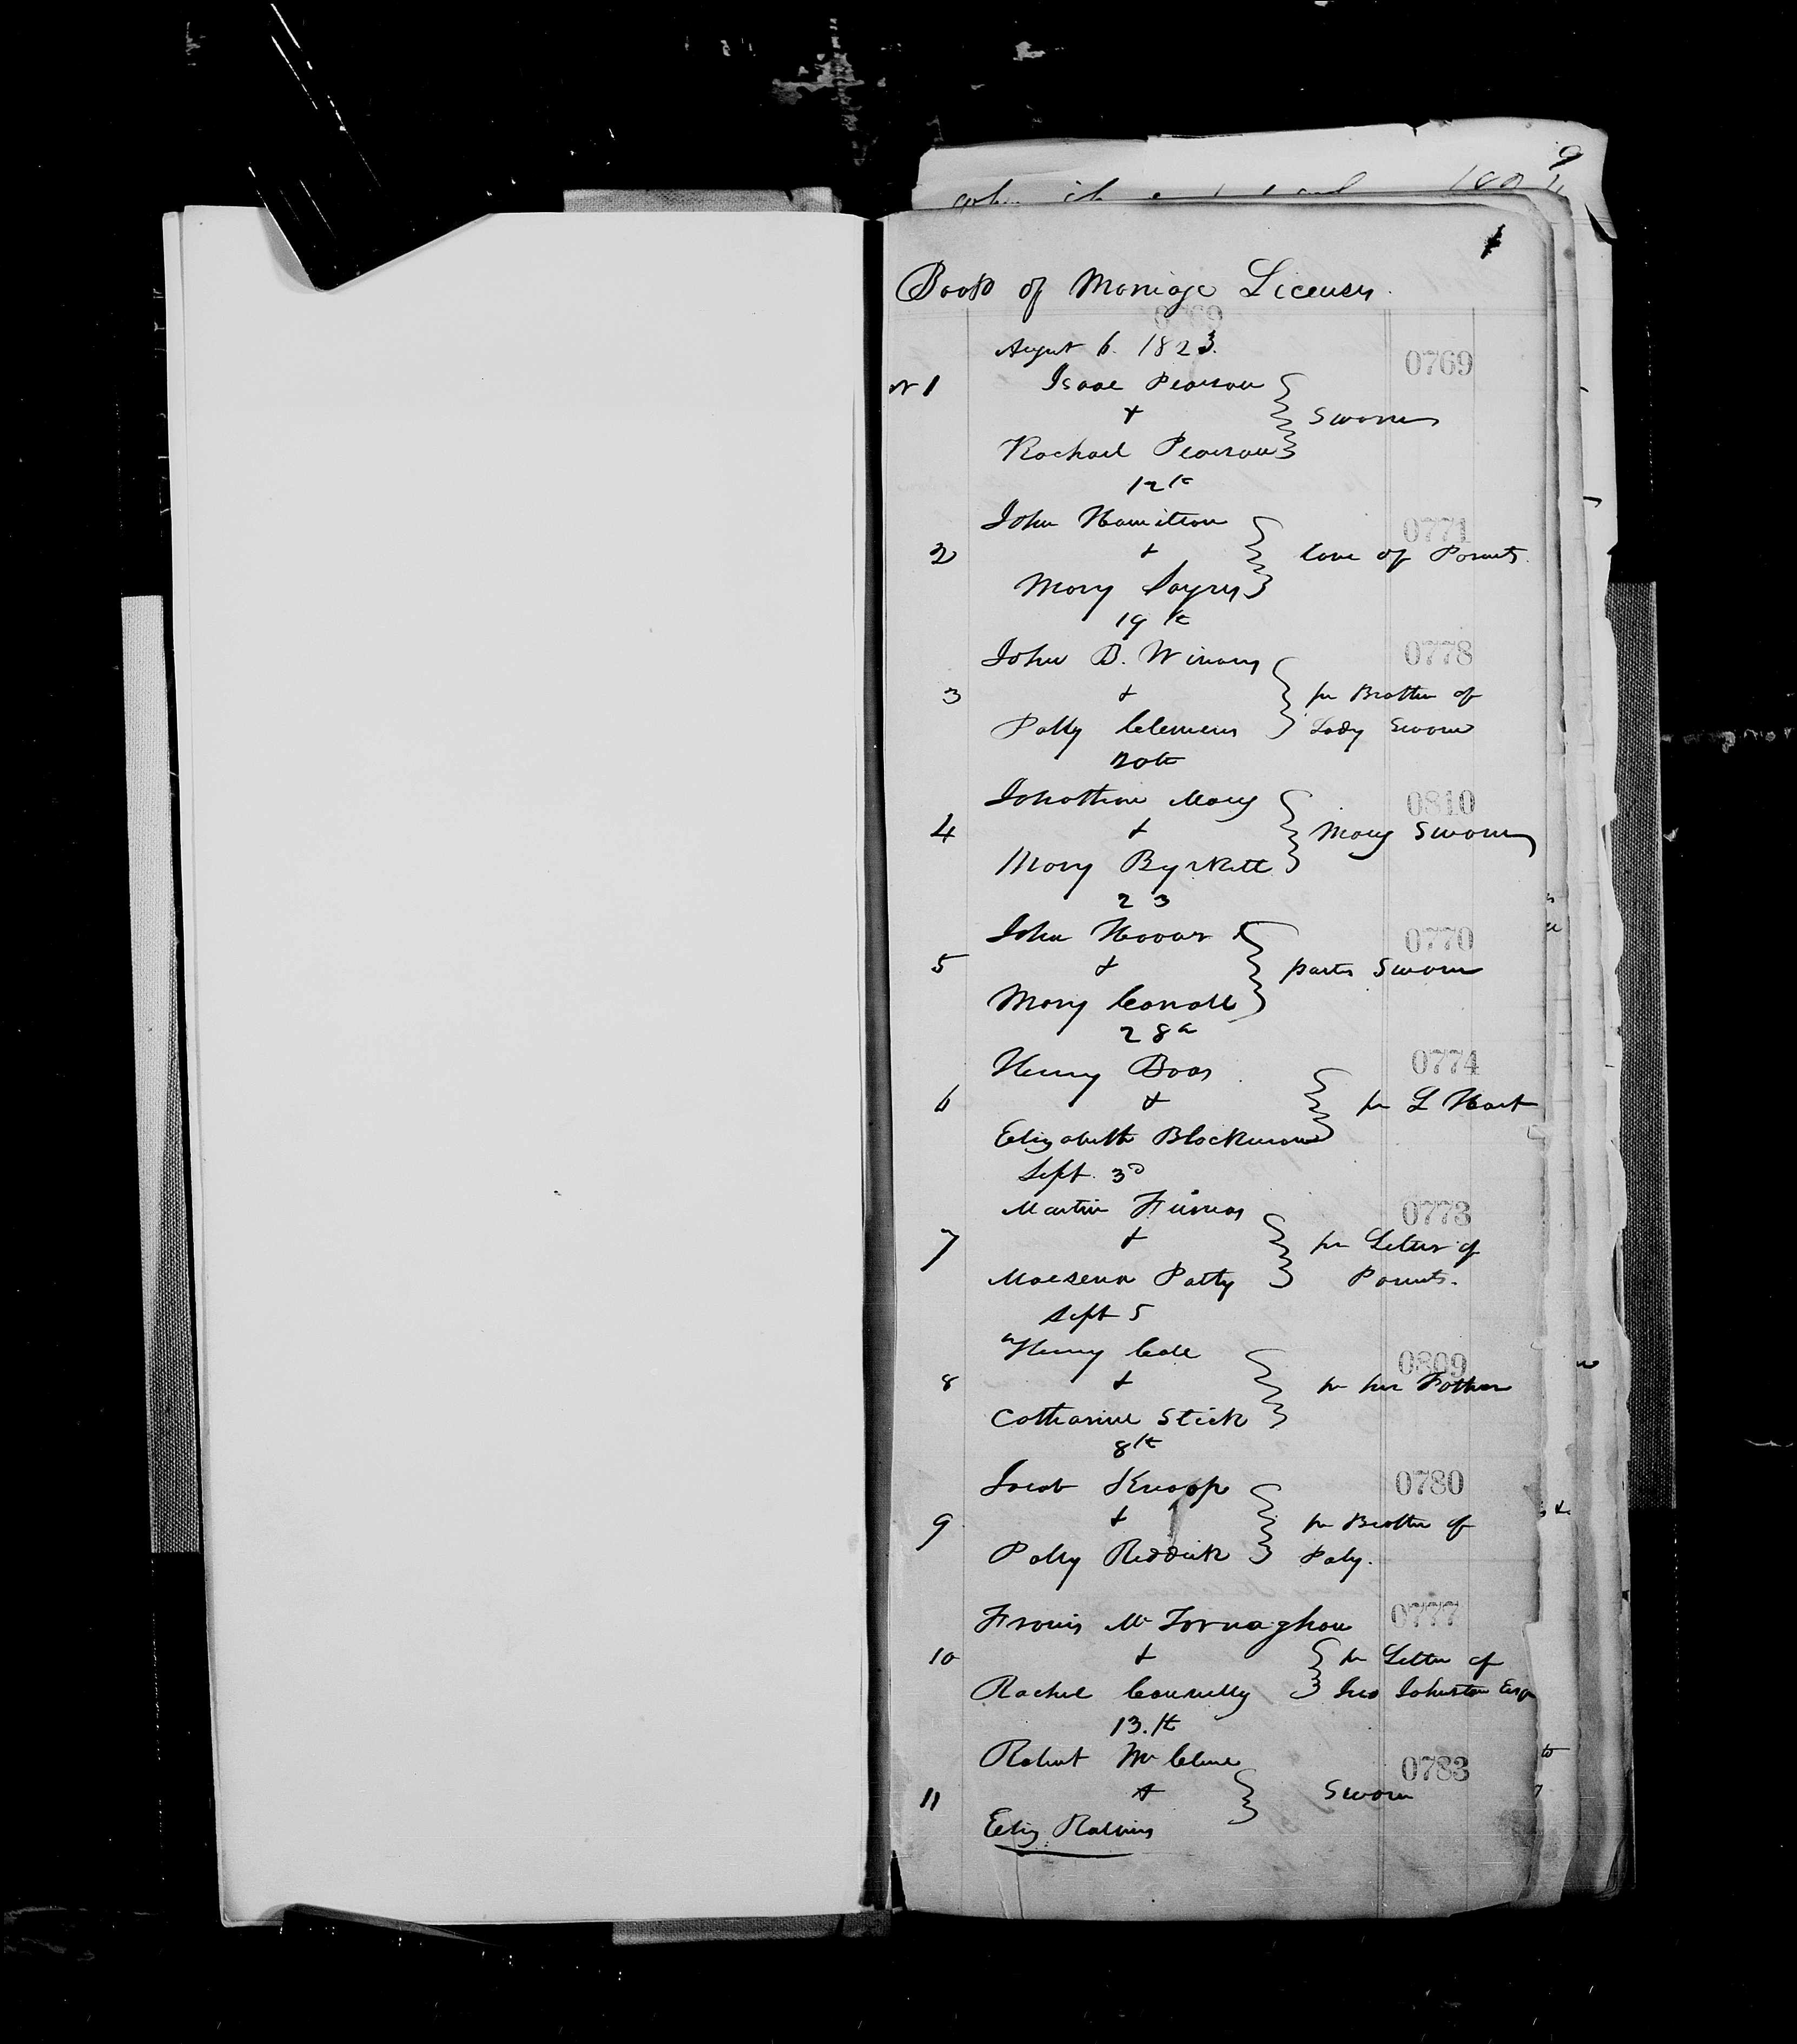 1
Book of Marriage Licenses.
0769
August 6. 1823.
0769
No 1
Isaac Pearson
+
Rachael Pearson
Sworn
12th
John Hamilton
0771
2
+
Cons of Parents.
Mary Sayrs
19th
John B. Winans
0778
3
+
pr Brother of
Polly Clemens
Lady Sworn
20th
Johathan Macy
0810
4
+
Macy Sworn
Mary Byrkett
23
John Hoover
0770
5
+
parts Sworn
Mary Corall
28th
Henry Boas
0774
6
+
pr L Hart
Elizabeth Blackmore
Sept. 3d
Martin Furnas
0773
7
+
pr Letter of
Patty
Parents.
Sept 5
Henry Cole
0809
8
+
pr her Father
Catharine Stick
8th
Jacob Knoop
0780
9
+
pr Brother of
Polly Reddick
Poly.
Francis Mc Tornaghan
0777
10
+
pr Letter of
Rachel Connelly
Jno Johnston Esqr
13.th
Robert Mc Clure
0783
11
+
Sworn
Eliz Rollins